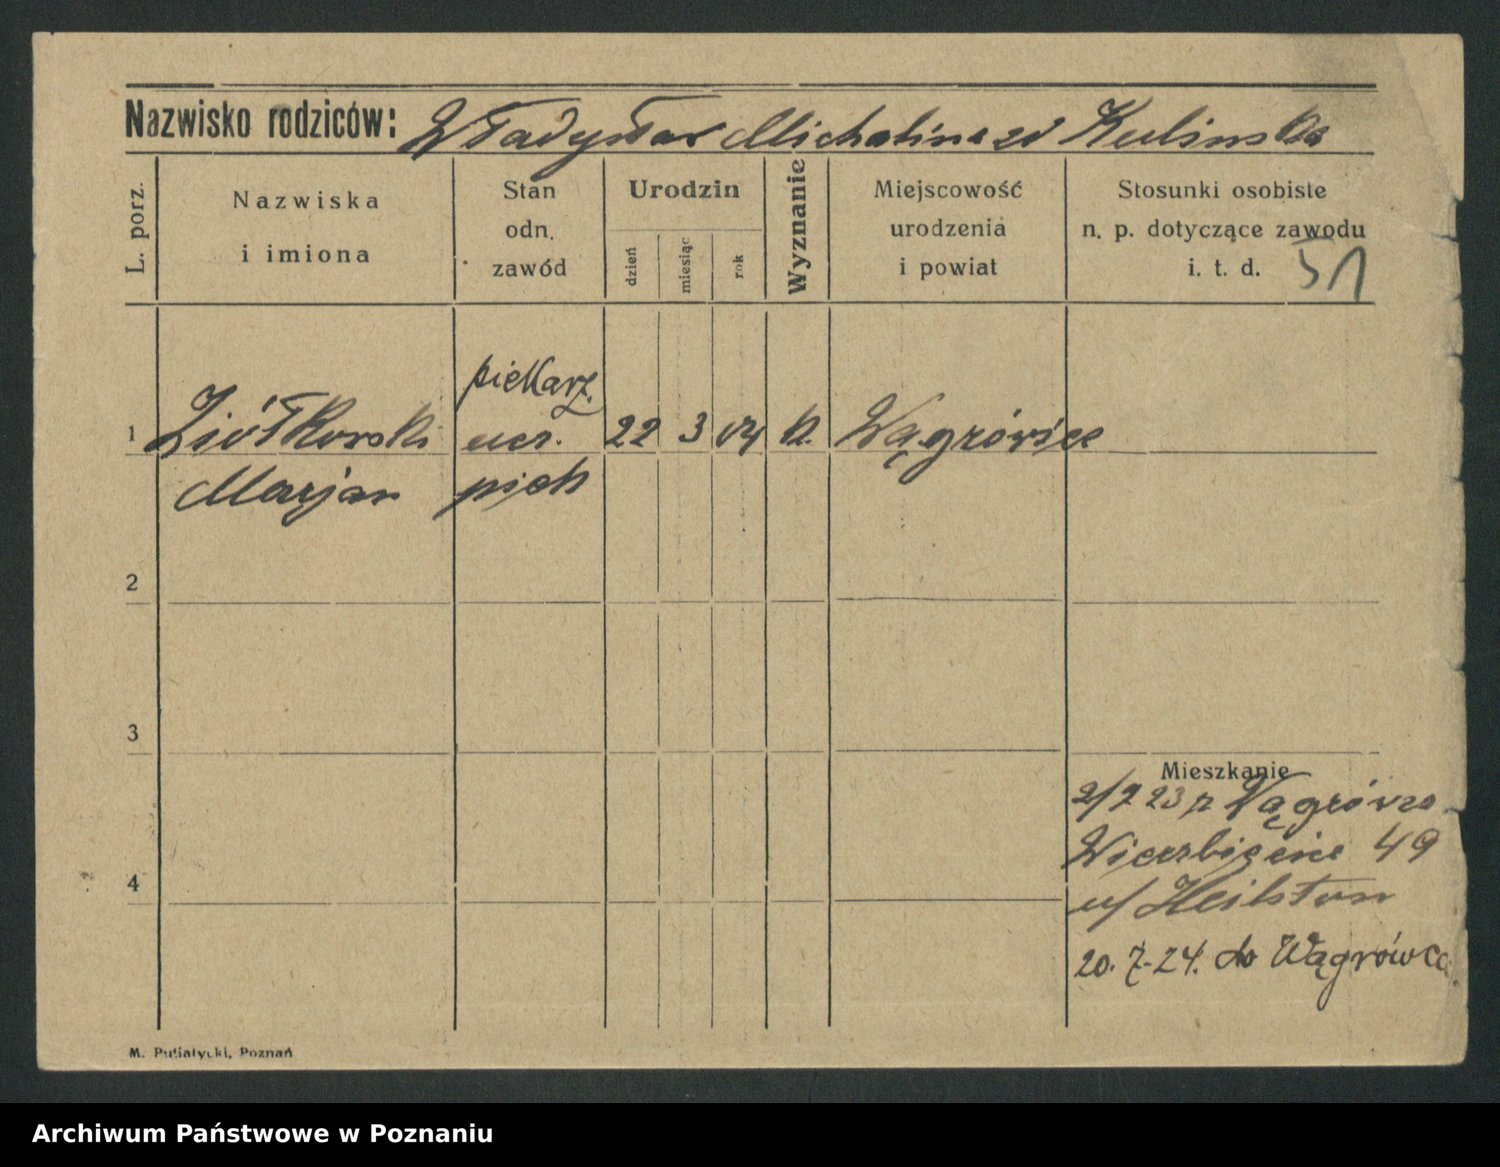 Nazwisko rodziców: Władysław Michalina zd Kulinska
L. porz.
Nazwiska
i imiona
Stan
odn.
zawód
Urodzin
dzień
miesiąc
rok
Wyznanie
Miejscowość
urodzenia
i powiat
Stosunki osobiste
n. p. dotyczące zawodu
i. t. d.
51
piekarz.
1 Ziółkowski ucz. 22 3 04 k. Wągrówiec
Marjan piek
2
3
Mieszkanie
2/7 23 z Wągrówca
Wierzbięcice 49
u/
4
20. 7-24. do Wągrówca
M. Putiatycki, Poznań
Archiwum Państwowe w Poznaniu